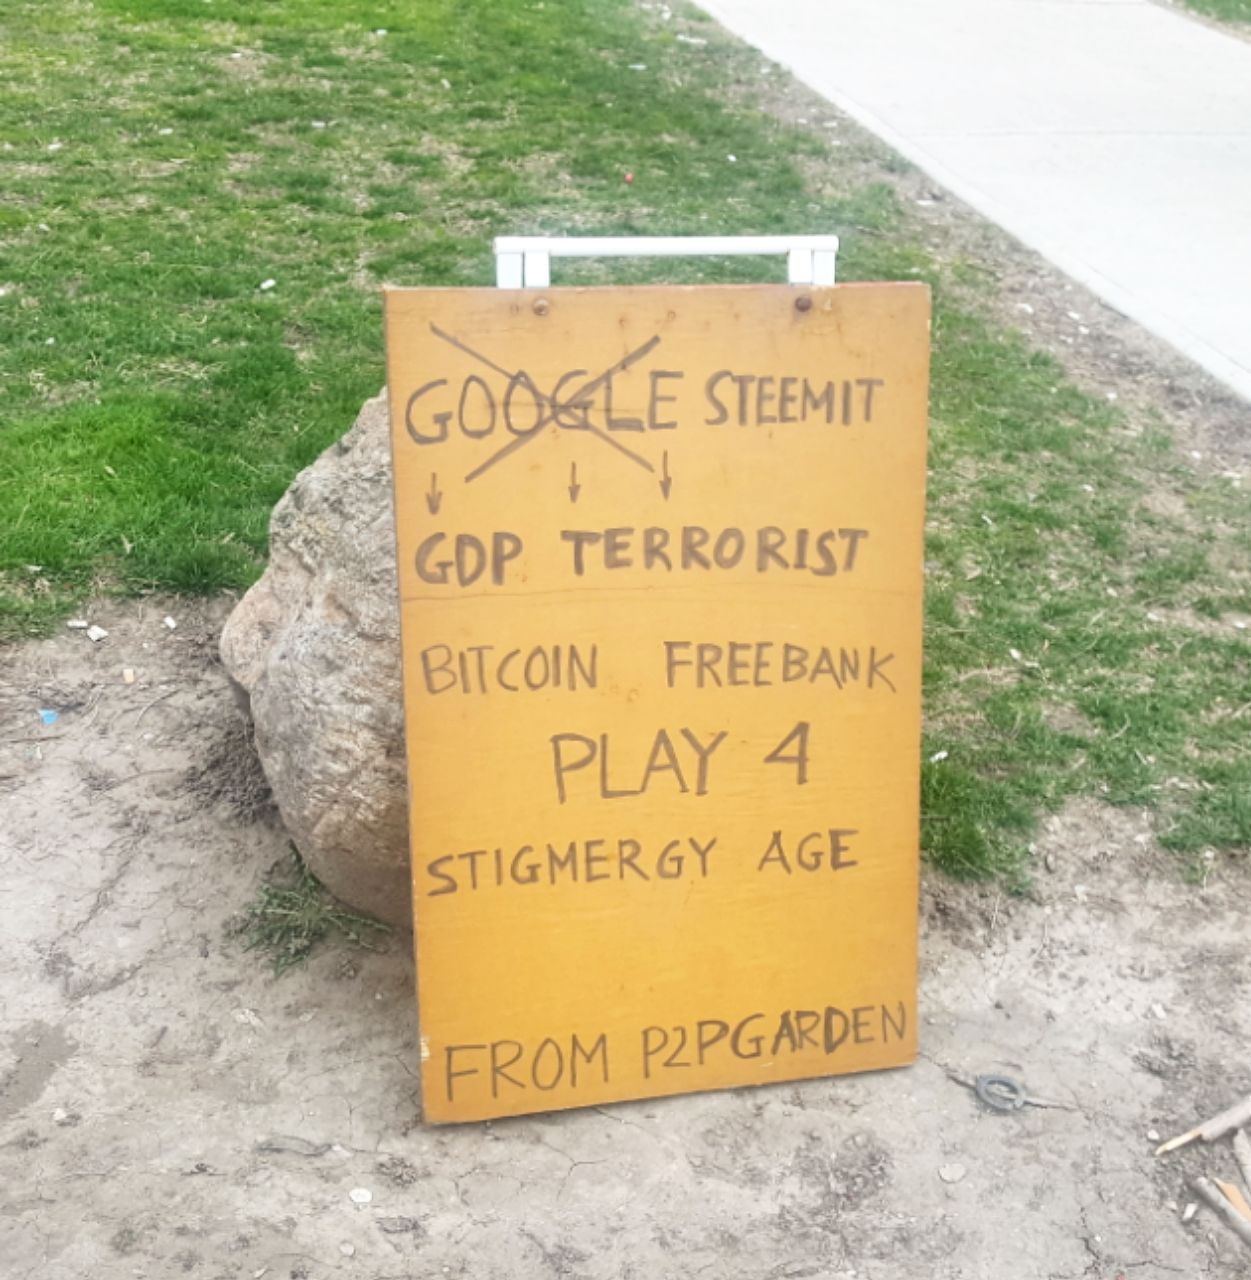 GOOGLE STEEMIT
↓ ↓ ↓
GDP TERRORIST
BITCOIN FREEBANK
PLAY 4
STIGMERGY AGE
FROM P2PGARDEN